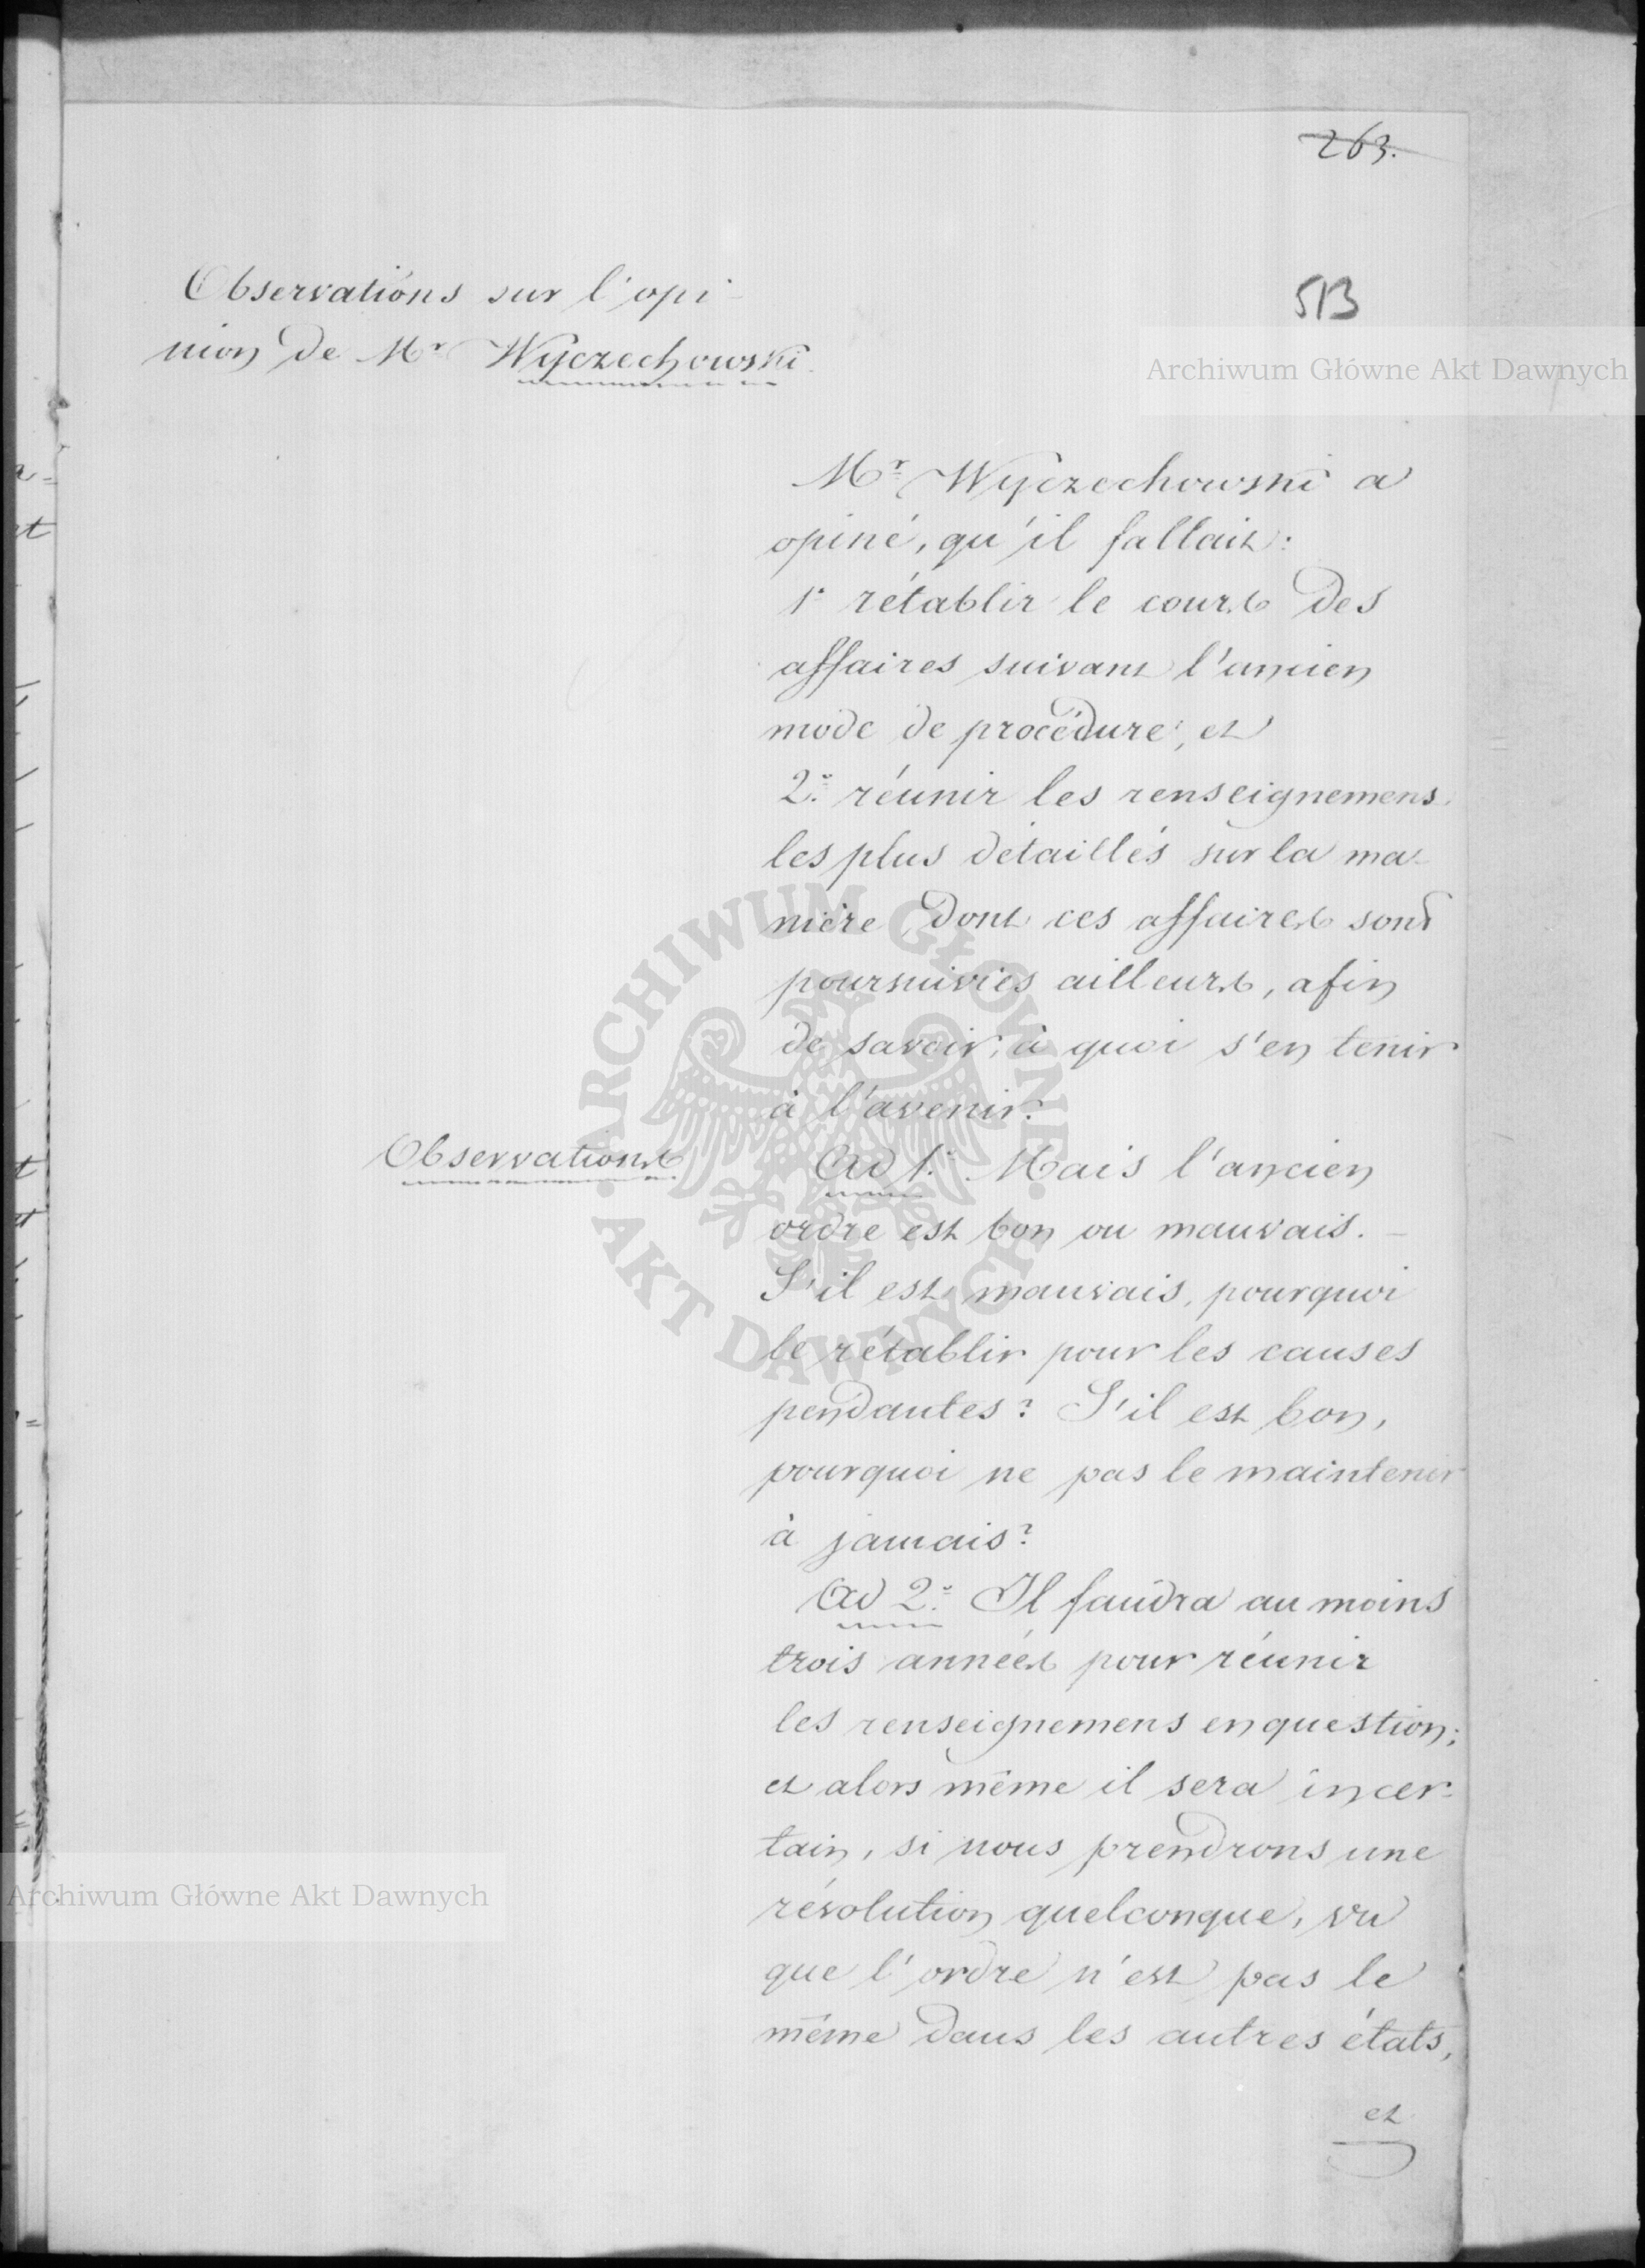 263.
513
Observations sur l'opi-
nion de Mr Wyczechowski.
Archiwum Główne Akt Dawnych
Mr Wyczechowski a
opiné, qu'il fallait:
1o rétablir le cours des
affaires suivant l'ancien
mode de procédure, et
2o réunir les renseignemens
les plus détaillés sur la ma-
nière, dont ces affaires sont
poursuivies ailleurs, afin
de savoir, à quoi s'en tenir
à l'avenir.
Observations
Ad 1o Mais l'ancien
ordre est bon ou mauvais. –
S'il est mauvais, pourquoi
le rétablir pour les causes
pendantes? S'il est bon,
pourquoi ne pas le maintenir
à jamais?
Ad 2o Il faudra au moins
trois années pour réunir
les renseignemens en question;
et alors même il sera incer-
tain, si nous prendrons une
résolution quelconque, vu
que l'ordre n'est pas le
même dans les autres états,
et
ARCHIWUM GŁÓWNE
AKT DAWNYCH
Archiwum Główne Akt Dawnych